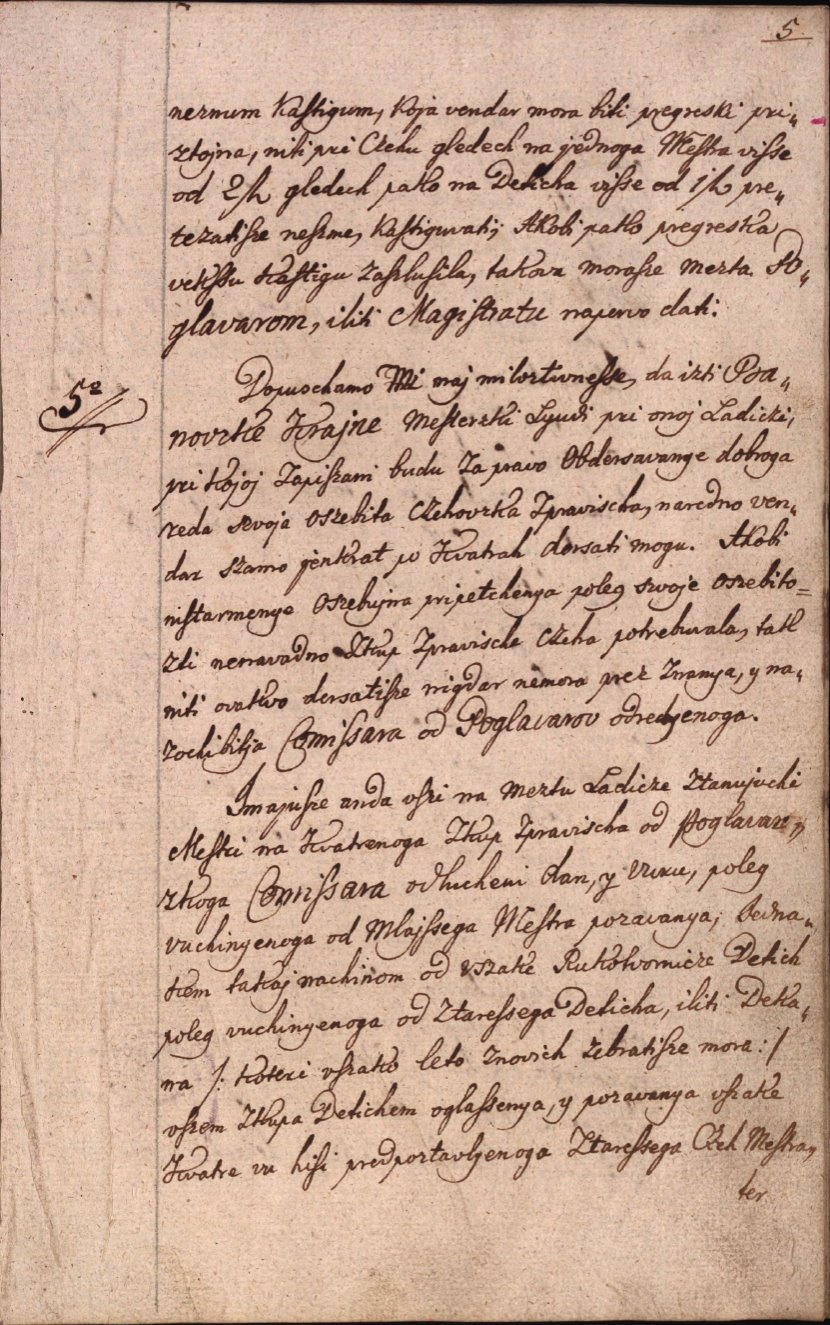 5
nernum Kaſtigum, koja vendar mora biti pregreski pri„
ztojna, niti pri Czehu gledech na jednoga Meſtra viſse
od 2 fh gledech pako na Deticha viſse od 1 fh pre„
tezatiſze neſzme, Kaſtiguvati; Akobi pako pregreska
vekſsu Kaſtigu zaſzlusila, takova moraſze mezta Po„
glavarom, iliti Magiſtratu napervo dati.
5º
Dopuschamo Mi naj miloztivneſse, da izti
novzke Krajne Meſterzki Lyudi pri onoj Ladiczi,
pri kojoj zapiſzani budu za pravo Obdersavanye dobroga
reda szvoja oszebita Czehovzka Zpravischa, naredno ven„
dar szamo jenkrat po Kvatrah dersati mogu. Akobi
niſtarmenye oszebujna pripetchenya poleg szvoje oszebito=
zti nenavadno Zkup Zpravische Czeha potrebuvala, tak
niti ovakvo dersatiſze nigdar nemora prez znanya, y na„
zochibitja Comiſsara od Poglavarov odredjenoga.
Imajuſze anda vſzi na meztu Ladicze ztanujuchi
Meſtri na Kvatrenoga Zkup Zpravischa od Poglavar„
zkoga Comiſsara odlucheni dan, y vuru, poleg
vuchinyenoga od Mlajſsega Meſtra pozavanya; Jedna„
kem takaj nachinom od vszake Rukotvornicze Detich
poleg vuchinyenoga od Ztareſsega Deticha, iliti Deka„
na /: koteri vſzako leto znovich zebratiſze mora :/
vſzem Zkupa Detichem oglaſsenya, y pozavanya vſzake
Kvatre vu hisi predpoztavljenoga Ztareſsega Czeh Meſtra,
ter